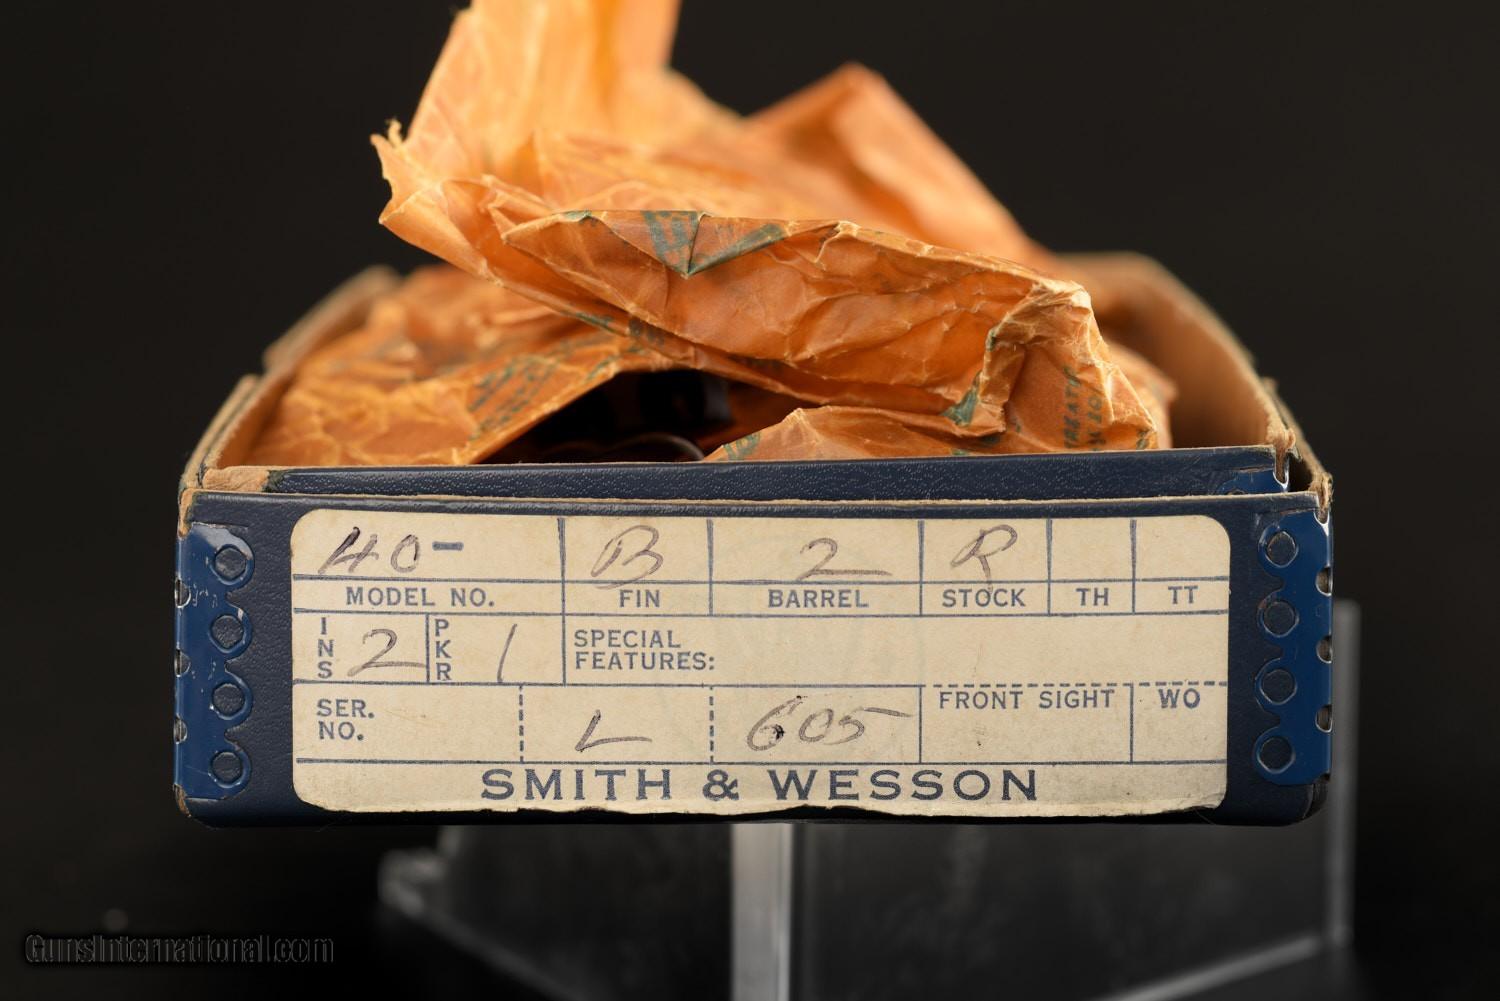 40- B 2 R
MODEL NO. FIN BARREL STOCK TH TT
INS 2 PKR 1 SPECIAL FEATURES:
SER. NO. L 605 FRONT SIGHT WO
SMITH & WESSON
GunsInternational.com